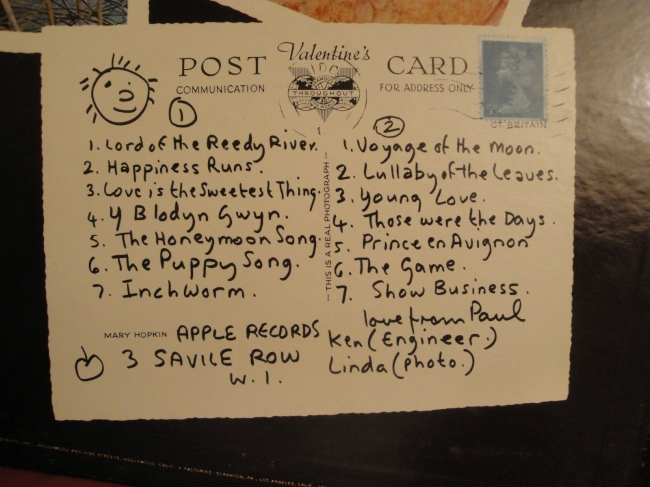 Valentine's
POST CARD
COMMUNICATION
FOR ADDRESS ONLY
THROUGHOUT
GT. BRITAIN
1
1. Lord of the Reedy River.
2. Happiness Runs.
3. Love is the Sweetest Thing.
4. Y Blodyn Gwyn.
5. The Honeymoon Song.
6. The Puppy Song.
7. Inchworm.
— THIS IS A REAL PHOTOGRAPH —
2
1. Voyage of the Moon.
2. Lullaby of the Leaves.
3. Young Love.
4. Those were the Days.
5. Prince en Avignon
6. The Game.
7. Show Business.
love from Paul
Ken (Engineer.)
Linda (photo.)
MARY HOPKIN APPLE RECORDS
3 SAVILE ROW
W.1.
HOLLYWOOD, CALIF. • FACTORIES: SCRANTON, PA., LOS ANGELES, CALIF.